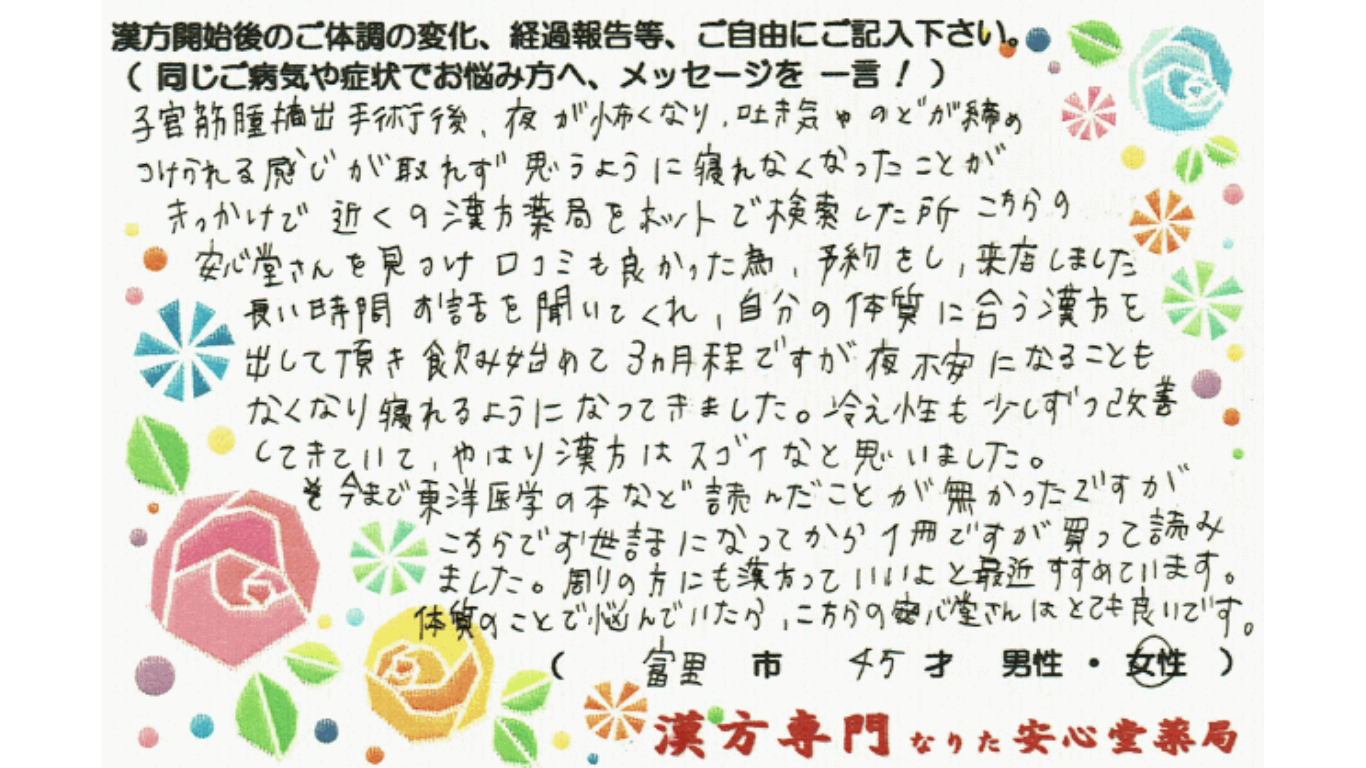 漢方開始後のご体調の変化、経過報告等、ご自由にご記入下さい。
（ 同じご病気や症状でお悩み方へ、メッセージを 一言！ ）
子宮筋腫摘出手術後、夜が怖くなり、吐き気やのどが締め
つけられる感じが取れず 思うように寝れなくなったことが
きっかけで 近くの漢方薬局をネットで検索した所 こちらの
安心堂さんを見つけ 口コミも良かった為、予約をし、来店しました
長い時間 お話を聞いてくれ、自分の体質に合う漢方を
出して頂き 飲み始めて 3ヵ月程ですが 夜 不安になることも
なくなり 寝れるようになってきました。冷え性も少しずつ改善
してきていて、やはり漢方はスゴイなと思いました。
今まで東洋医学の本など読んだことが無かったですが
こちらでお世話になってから 1冊ですが買って読み
ました。周りの方にも漢方っていいよと最近すすめています。
体質のことで悩んでいたら、こちらの安心堂さんはとても良いです。
（ 富里 市 45 才 男性 ・ 女性 ）
漢方専門 なりた 安心堂薬局